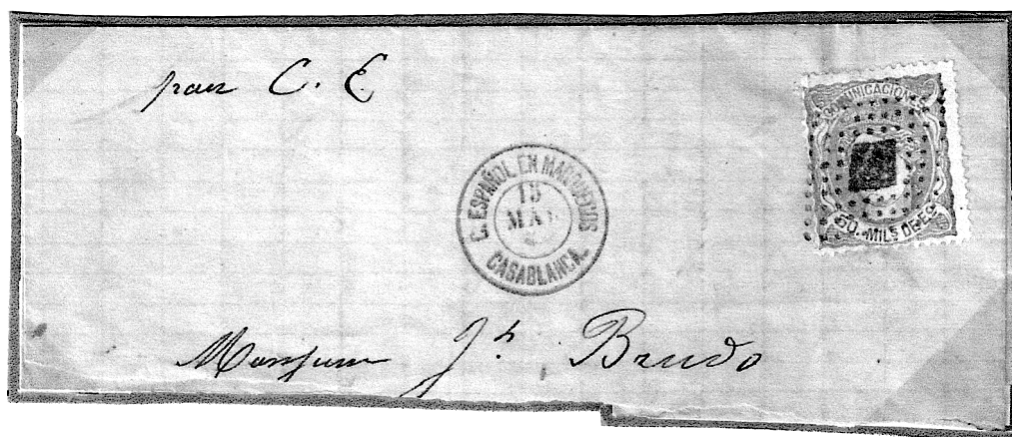 par C. E
COMUNICACIONES
50. MILS DE EO.
C. ESPAÑOL EN MARRUECOS
15
MAY
CASABLANCA
Monsieur Jh Brudo